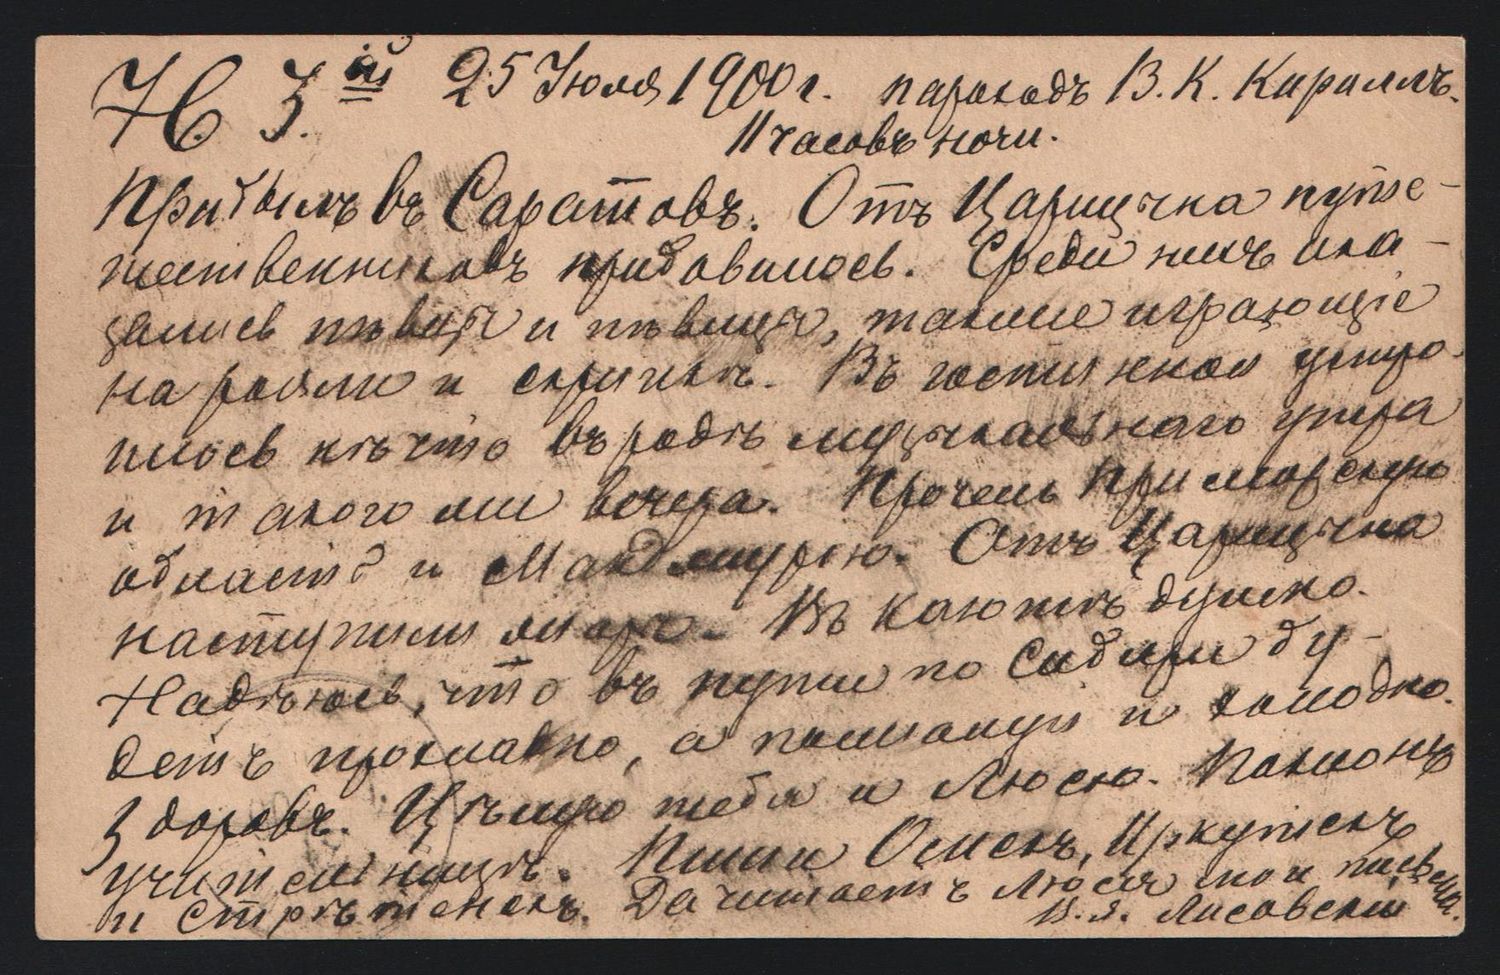 № 3.ій 25 Іюля 1900 г. пароходъ В. К. Кириллъ.
11 часовъ ночи.
Прибылъ въ Саратовъ. Отъ Царицына путе-
шественниковъ прибавилось. Среди нихъ ока-
зались пѣвцы и пѣвицы, также играющіе
на рояли и скрипкѣ. Въ гостиной устро-
илось нѣчто въ родѣ музыкальнаго утра
и такого же вечера. Прочелъ Приморскую
область и Манджурію. Отъ Царицына
наступили жары. Въ каютѣ душно.
Надѣюсь, что въ пути по Сибири бу-
детъ прохладно, а пожалуй и холодно.
Здоровъ. Цѣлую тебя и Люсю. Поклонъ
учительницѣ. Пиши Омскъ, Иркутскъ
и Стрѣтенскъ. Да читаетъ Люся мои письма.
Лисовскій